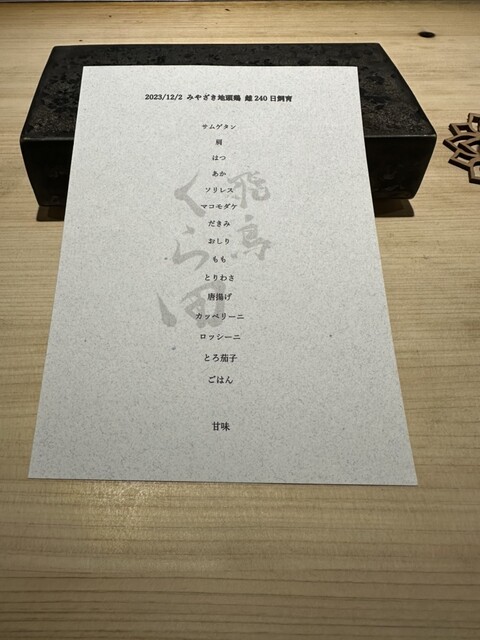 2023/12/2 みやざき地頭鶏 雌240日飼育
サムゲタン
肩
はつ
あか
ソリレス
マコモダケ
だきみ
おしり
もも
とりわさ
唐揚げ
カッペリーニ
ロッシーニ
とろ茄子
ごはん
甘味
飛高
くら田